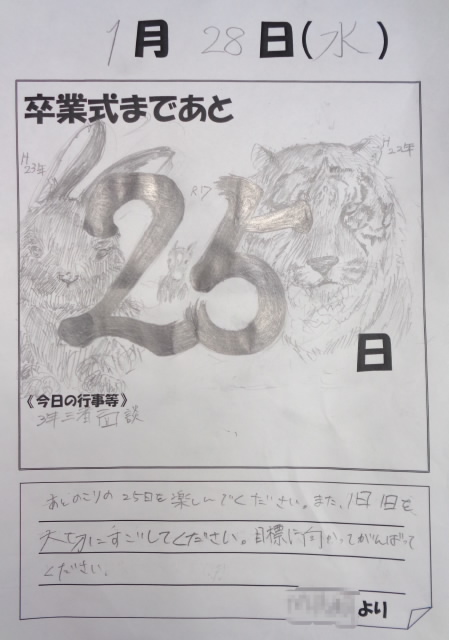 1月 28日(水)
卒業式まであと
H23年
H22年
R7
25
日
《今日の行事等》
3年 三者面談
あとのこりの25日を楽しんでください。また、1日1日を
大切にすごしてください。目標に向かってがんばって
ください。
より